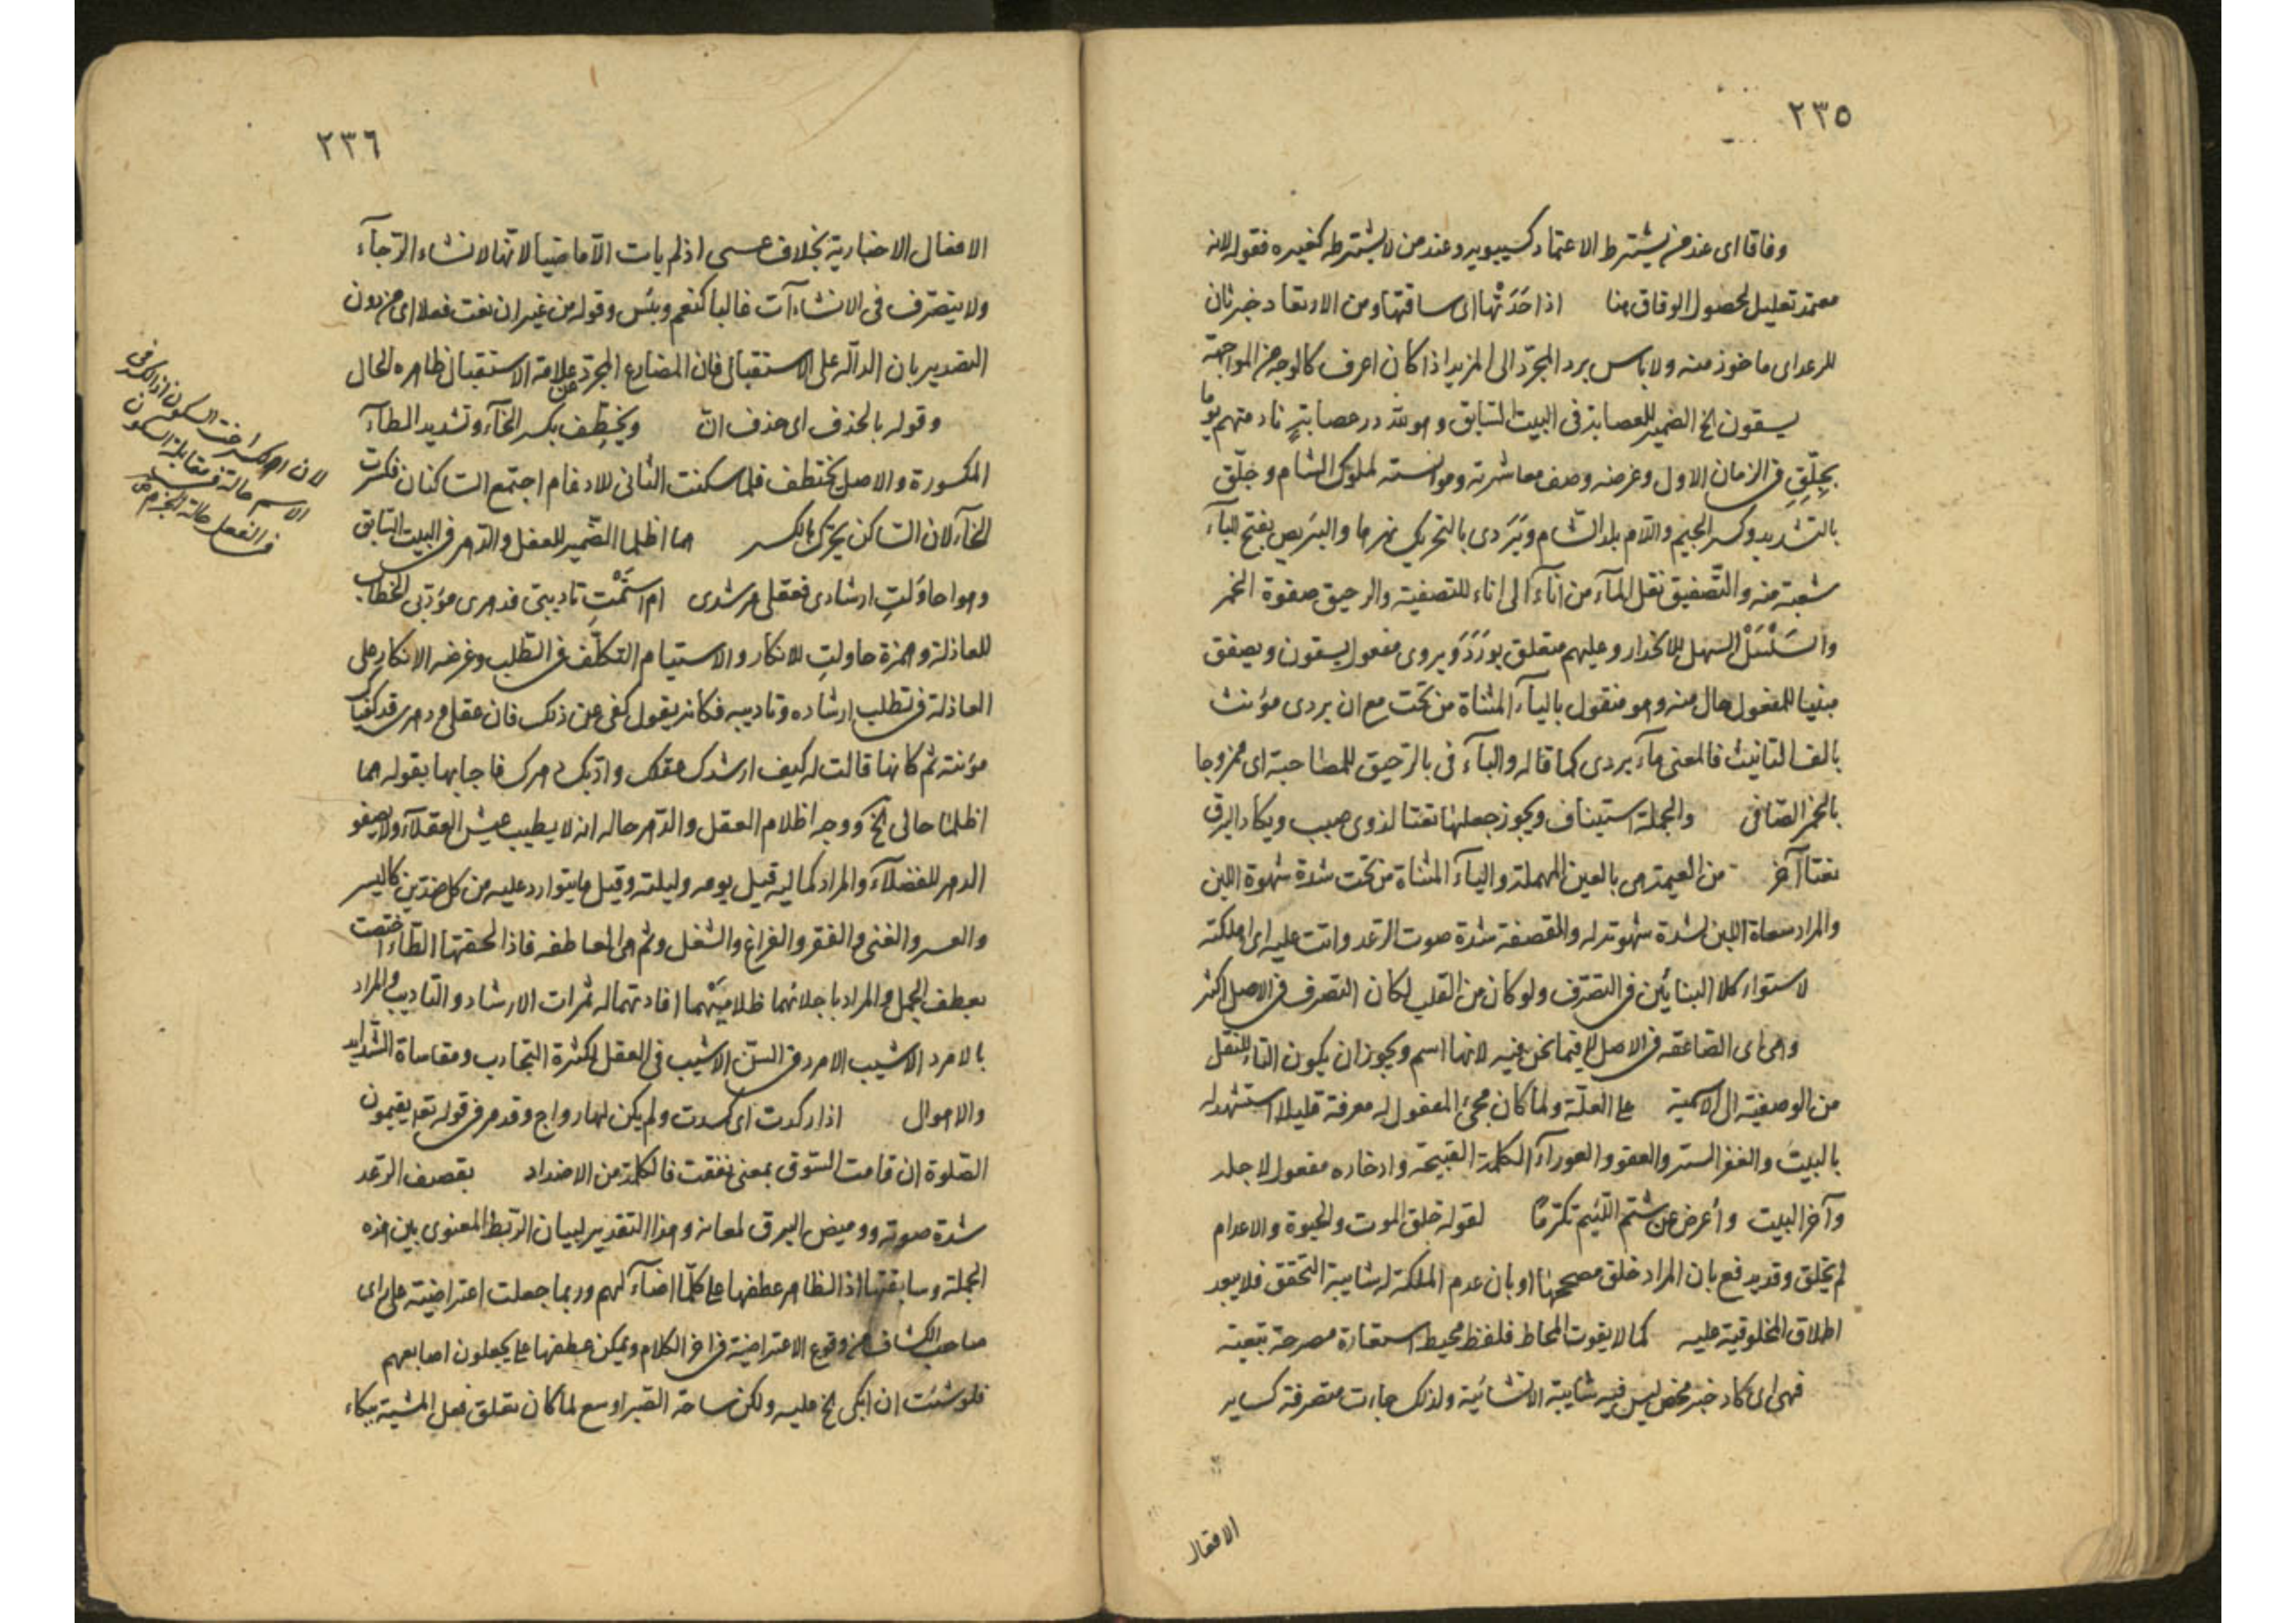 ٢٣٥
وفاقا اى عند من يشترط الاعتماد كسيبويه وعند من لا يشترطه كغيره فقوله لانه
معتمد تعليل لحصول الوفاق هنا اذا حَدَتْها الى ساقتها ومن الارتعاد خبر ثان
للرعد اى ماخوذ منه ولا باس برد المجرّد الى المزيد اذا كان اعرف كالوجه من المواجهة
يسقون الخ الضمير للعصابة فى البيت السابق وهو لله در عصابةٍ نادمتهم يوما
بجِلِّقٍ فى الزمان الاول وغرضه وصف معاشرته وموانسته لملوك الشام وجلّق
بالتشديد وكسر الجيم واللام بلد الشام وبَرَدى بالتحريك نهرها والبَريص بفتح البآء
شعبة منه والتّصفيق نقل المآء من انآء الى اناء للتصفية والرحيق صفوة الخمر
والسَلْسَلْ السهل للانحدار وعليهم متعلق بورَدَ وبروى مفعول يسقون ويصفق
مبنيا للمفعول حال منه وهو منقول باليآء المثناة من تحت مع ان بردى مؤنث
بالف التانيث فالمعنى مآء بردى كما قاله والبآء فى بالرّحيق للمصاحبة اى ممزوجا
بالخمر الصّافى والجملة استيناف ويجوز جعلها نعتا لذوى صيب ويكاد البرق
نعتا آخر من العيمة هى بالعين المهملة واليآء المثناة من تحت شدة شهوة اللبن
والمراد سماة اللبن لشدة شهوته له والمقصفة شدة صوت الرّعد واتت عليه اى اهلكته
لاستواء كلا البنائين فى التصرّف ولو كان من القلب لكان التصرف فى الاصل اكثر
وهى اى الصّاعقه فى الاصل لا فيما نحن فيه لانها اسم ويجوز ان يكون التاء للنقل
من الوصفية الى الاسمية على العلّة ولما كان مجئ المفعول له معرفة قليلا استشهد له
بالبيت والغفر الستر والعفو والعورآء الكلمة القبيحة وادخاره مفعول لاجله
وآخر البيت وأعرض عن شتم اللئيم تكرّما لقوله خلق الموت والحيوة والاعدام
لم يخلق وقد يدفع بان المراد خلق مصححها او بان عدم الملكة له شايبة التحقق فلا يبعد
اطلاق المخلوقية عليه كما لا يفوت المحاط فلفظ محيط استعارة مصرحة تبعية
فهى اى كاد خبر محض ليس فيه شايبة الانشائية ولذلك جاءت متصرفة كساير
الافعال
٢٣٦
الافعال الاخبارية بخلاف عسى اذ لم يات الّا ماضيا لانّها لانشاء الرّجآء
ولا يتصّرف فى الانشاءآت غالبا كنعم وبئس وقوله من غير ان نعت فعلا اى من دون
التصدير بان الدالّه على الاستقبال فان المضارع المجرّد عن علامة الاستقبال ظاهره الحال
وقوله بالحذف اى حذف انّ ويخِطِّف بكسر الخآء وتشديد الطآء
المكسورة والاصل يختطف فلما سكنت الثانى للادغام اجتمع السّاكنان فكرت
الخآء لان السّاكن يحرّك بالكسر هما اظلما الضّمير للعقل والدّهر فى البيت السّابق
وهو احاوَلتِ ارشادى فعقلى مرشدى ام استَمْتِ تاديبى فدهرى مؤدّبى الخطاب
للعاذلة وهمزة حاولتِ للانكار والاستيام التكلّف فى الطّلب وغرضه الانكار على
العاذلة فى تطلب ارشاده وتاديبه فكانه يقول كفى عن ذلك فان عقلى ودهرى قد كفيا كى
مؤنته ثم كانها قالت له كيف ارشدك عقلك وادّبك دهرك فاجابها بقوله هما
اظلما حالى الخ ووجه اظلام العقل والدّهر حاله انه لا يطيب عيش العقلآء ولا يصفو
الدهر للفضلآء والمراد كماليه قيل يومه وليلته وقيل ما يتوارد عليه من كل ضدّين كاليسر
والعسر والغنى والفقر والفراغ والشغل وثم هى العاطفه فاذا لحقتها التّاء اختصت
بعطف الجمل والمراد باجلائهما ظلاميْهما افادتهما له ثمرات الارشاد والتاديب والمراد
بالامرد الاشيب الامرد فى السّن الاشيب فى العقل لكثرة التجارب ومقاساة الشدايد
والاهوال اذا ركدت اى كسدت ولم يكن لها رواج وقد مر فى قوله تعه يقيمون
الصّلوة ان قامت السّوق بمعنى نفقت فالكلمة من الاضداد بقصيف الرّعد
شدة صوته ووميض البرق لمعانه وهذا التقدير لبيان الرّبط المعنوى بين هذه
الجملة وسابقتها اذ الظاهر عطفها على كلّما اضآء لهم وربما جعلت اعتراضية على راى
صاحب الكشاف من وقوع الاعتراضية فى اخر الكلام ويمكن عطفها على يجعلون اصابعهم
فلو شئت ان ابكى الخ عليه ولكن ساحة الصّبر اوسع لما كان تعلق فعل المشية ببكاء
لان الكسر اخت السكون اذ الكسر فى
الاسم حالة فى مقابلة السكون
فى الفعل حالة الجزم